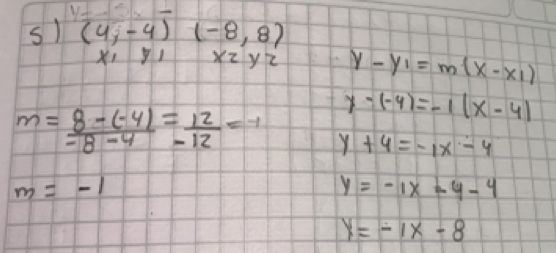 5) (4, -4) (-8, 8)
x1 y1 x2 y2
m = 8 - (-4) = 12 = -1
-8 - 4 -12
m = -1
y - y1 = m(x - x1)
y - (-4) = -1(x - 4)
y + 4 = -1x - 4
y = -1x - 4 - 4
y = -1x - 8